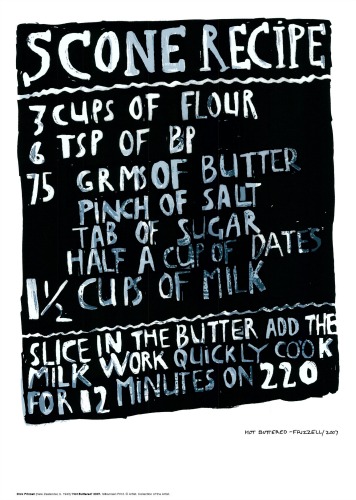 SCONE RECIPE
3 CUPS OF FLOUR
6 TSP OF BP
75 GRMS OF BUTTER
PINCH OF SALT
TAB OF SUGAR
HALF A CUP OF DATES
1 1/2 CUPS OF MILK
SLICE IN THE BUTTER ADD THE
MILK WORK QUICKLY COOK
FOR 12 MINUTES ON 220
HOT BUTTERED - FRIZZELL / 2007